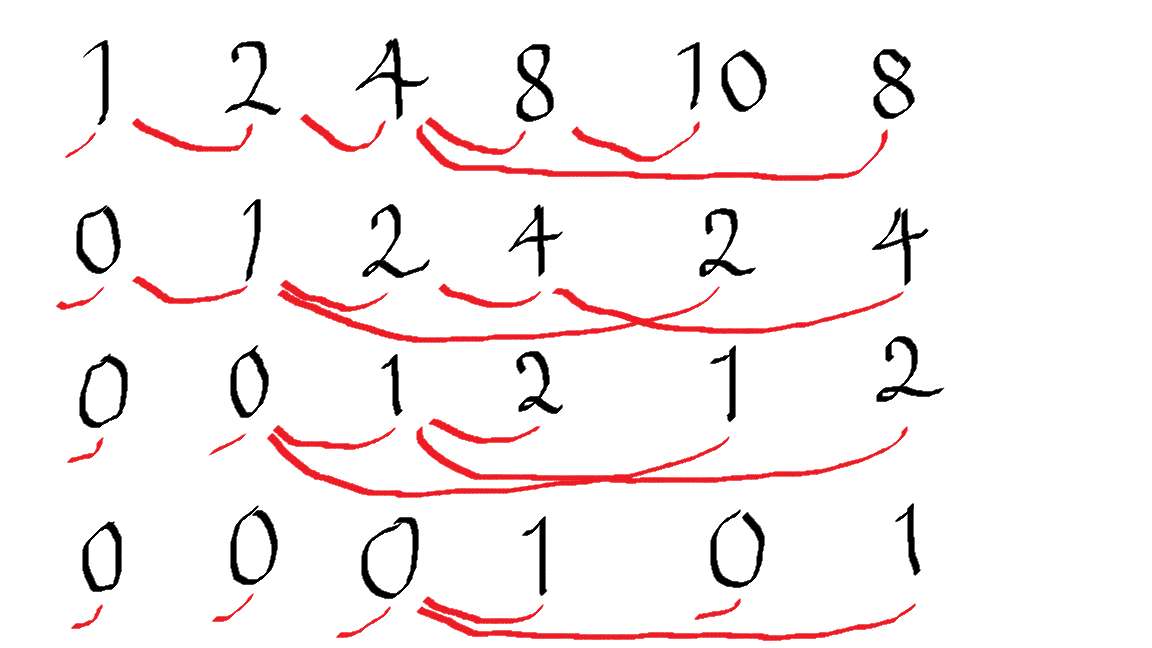 1 2 4 8 10 8
0 1 2 4 2 4
0 0 1 2 1 2
0 0 0 1 0 1